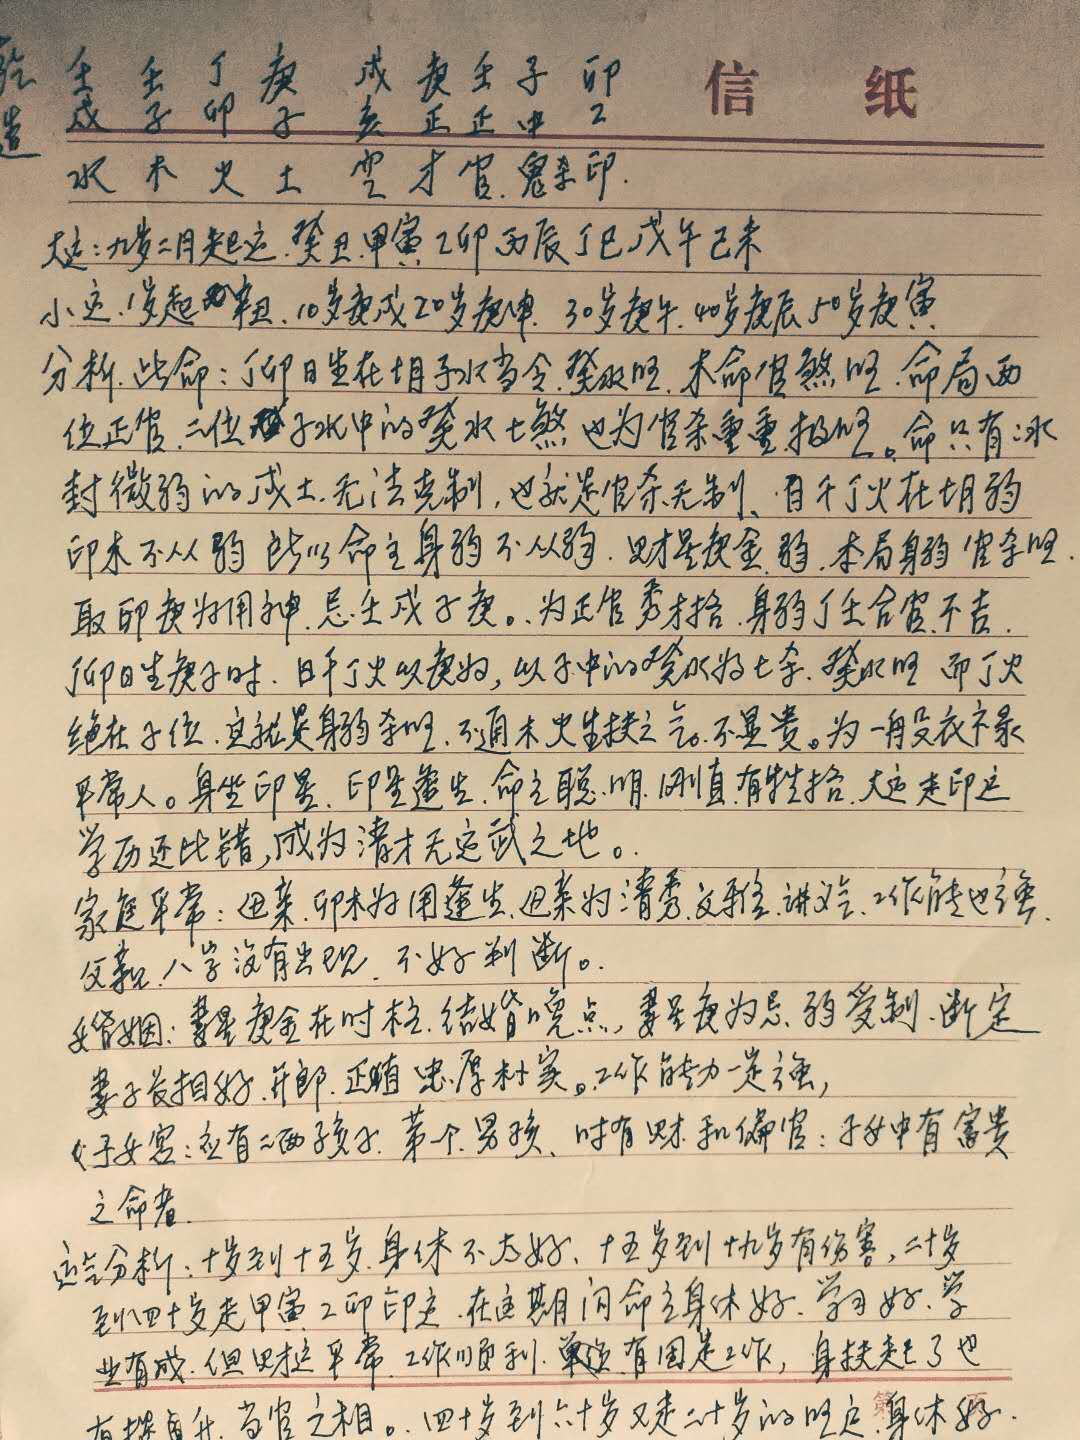 乾造 壬 壬 丁 庚 戌 庚 壬 子 卯 信纸
戌 子 卯 子 亥 正 正 中 乙
水 木 火 土 空 才 官.鬼杀印.
大运:九岁二月起运.癸丑.甲寅乙卯丙辰丁巳戊午己未
小运.1岁起辛丑.10岁庚戌20岁庚申.30岁庚午.40岁庚辰50岁庚寅
分析.此命:丁卯日生在子水当令.癸水旺.本命官煞旺.命局两
位正官.二位子水中的癸水七煞也为官杀重重极旺。命只有冰
封微弱的戌土.无法克制,也就是官杀无制、日干丁火在月弱
印木不从弱 所以命主身弱不从弱.财星庚金.弱.本局身弱官杀旺.
取卯庚为用神.忌壬戌子庚。.为正官秀才格.身弱丁壬合官.不吉.
丁卯日生庚子时.日干丁火以庚为,以子中的癸水为七杀.癸水旺 而丁火
绝在子位.这就是身弱杀旺.不通木火生扶之气。不显贵。为一般衣禄
平常人。身坐印星.印星逢生.命主聪明.刚直.有性格.大运走印运
学历还比错,成为清才无运武之地。.
家庭平常:母亲.卯木为用逢生.母亲为清秀.文雅.讲义气.工作能也强.
父亲.八字没有出现.不好判断。.
婚姻:妻星庚金在时柱.结婚晚点,妻星庚为忌.弱受制.断定
妻子长相好.开郎.正直忠厚朴实。.工作能力一定强,
子女宫:应有二两孩子.第一个男孩、时有财和偏官:子女中有富贵
之命者.
运气分析:十岁到十五岁.身体不太好、十五岁到十九岁有伤害,二十岁
到四十岁走甲寅.乙卯印运.在这期间命主身体好.学习好.学
业有成.但财运平常.工作顺利.单位有固定工作,身扶起了也
有提身升.当官之相。.四十岁到六十岁又走二十岁的旺运.身体好.
第 页